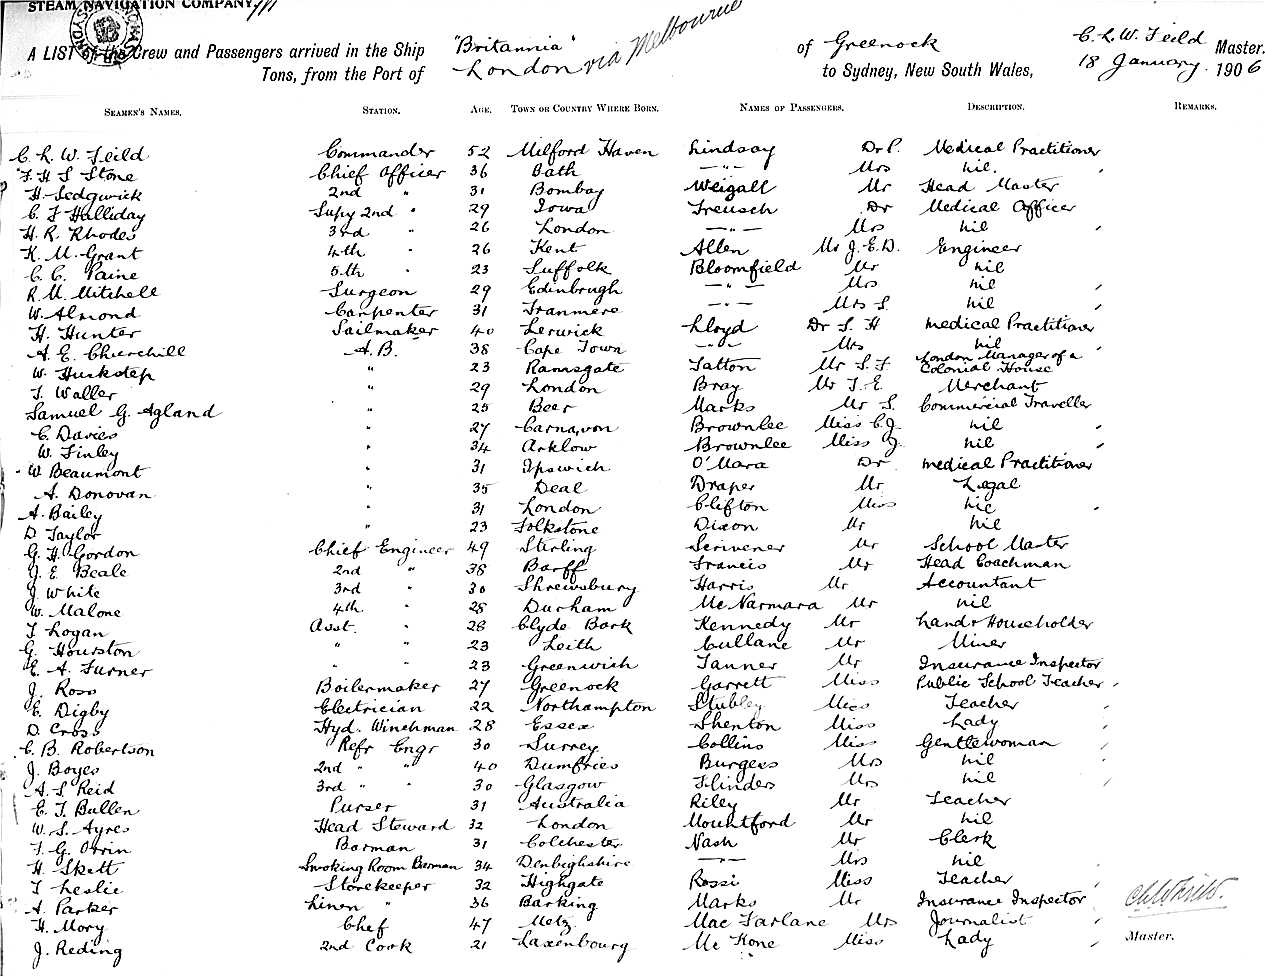 STEAM NAVIGATION COMPANY
A LIST of the Crew and Passengers arrived in the Ship "Britannia" of Greenock C. L. W. Feild Master.
Tons, from the Port of London via Melbourne to Sydney, New South Wales, 18 January 1906
SEAMEN'S NAMES. STATION. AGE. TOWN OR COUNTRY WHERE BORN. NAMES OF PASSENGERS. DESCRIPTION. REMARKS.
C. L. W. Feild Commander 52 Milford Haven Lindsay Dr P. Medical Practitioner
F. H. S Stone Chief Officer 36 Bath —"— Mrs nil.
H. Sedgwick 2nd " 31 Bombay Weigall Mr Head Master
C. F Halliday Supy 2nd " 29 Iowa Treusch Dr Medical Officer
H. R. Rhodes 3rd " 26 London —"— Mrs nil
K. M. Grant 4th " 26 Kent Allen Mr J. E. D. Engineer
C. C. Paine 5th " 23 Suffolk Bloomfield Mr nil
R. M. Mitchell Surgeon 29 Edinbrugh —"— Mrs nil
W. Almond Carpenter 31 Tranmere —"— Mrs S. nil
H. Hunter Sailmaker 40 Lerwick Lloyd Dr S. H Medical Practitioner
A. E. Churchill A. B. 38 Cape Town —"— Mrs nil
W. Huckstep " 23 Ramsgate Tatton Mr S. F London Manager of a Colonial House
T. Waller " 29 London Bray Mr T. E. Merchant
Samuel G. Agland " 25 Beer Marks Mr S. Commercial Traveller
C. Davies " 27 Carnavon Brownlee Miss C. J. nil
W. Finley " 34 Arklow Brownlee Miss J. nil
W. Beaumont " 31 Ipswich O'Mara Dr Medical Practitioner
A. Donovan " 35 Deal Draper Mr Legal
A. Bailey " 31 London Clifton Miss nil
D Taylor " 23 Folkstone Dixon Mr nil
G. H. Gordon Chief Engineer 49 Stirling Scrivener Mr School Master
J. E. Beale 2nd " 38 Barff Francis Mr Head Coachman
J. White 3rd " 30 Shrewsbury Harris Mr Accountant
W. Malone 4th " 28 Durham McNarmara Mr nil
T Logan Asst. " 28 Clyde Bank Kennedy Mr Land & Householder
G. Hourston " " 23 Leith Cullane Mr Miner
E. A. Furner " " 23 Greenwich Tanner Mr Insurance Inspector
J. Ross Boilermaker 27 Greenock Garrett Miss Public School Teacher
E. Digby Electrician 22 Northampton Stubley Miss Teacher
D. Cross Hyd. Winchman 28 Essex Shenton Miss Lady
C. B. Robertson Refr Engr 30 Surrey Collins Miss Gentlewoman
J. Boyes 2nd " " 40 Dumfries Burgess Mrs nil
A. S Reid 3rd " " 30 Glasgow Flinders Mrs nil
E. T. Bullen Purser 31 Australia Riley Mr Teacher
W. S. Ayres Head Steward 32 London Mountford Mr nil
F. G. Orrin Barman 31 Colchester Nash Mr Clerk
H. Skett Smoking Room Barman 34 Denbighshire —"— Mrs nil
T Leslie Storekeeper 32 Highgate Rossi Miss Teacher
A. Parker Linen " 36 Barking Marks Mr Insurance Inspector
H. Mory Chef 47 Metz Mac Farlane Mrs Journalist
J. Reding 2nd Cook 21 Laxenbourg McKone Miss Lady
Master.